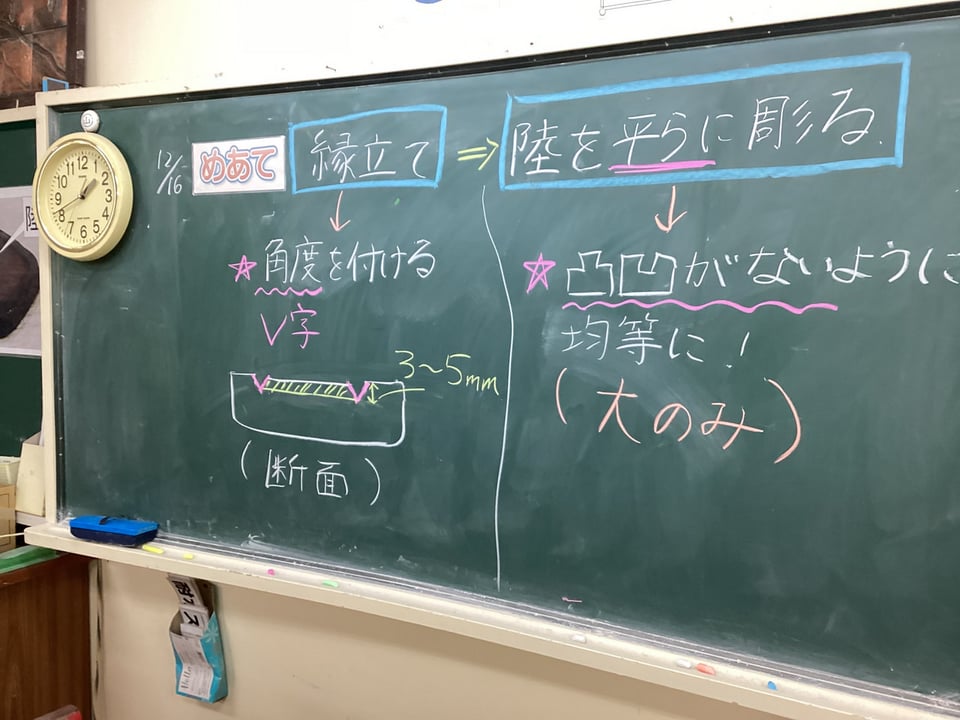 12/16 めあて 縁立て ⇒ 陸を平らに彫る。
☆角度を付ける
V字
3〜5mm
(断面)
☆凸凹がないように
均等に!
(大のみ)
12 1 2 3 4 5 6 7 8 9 10 11